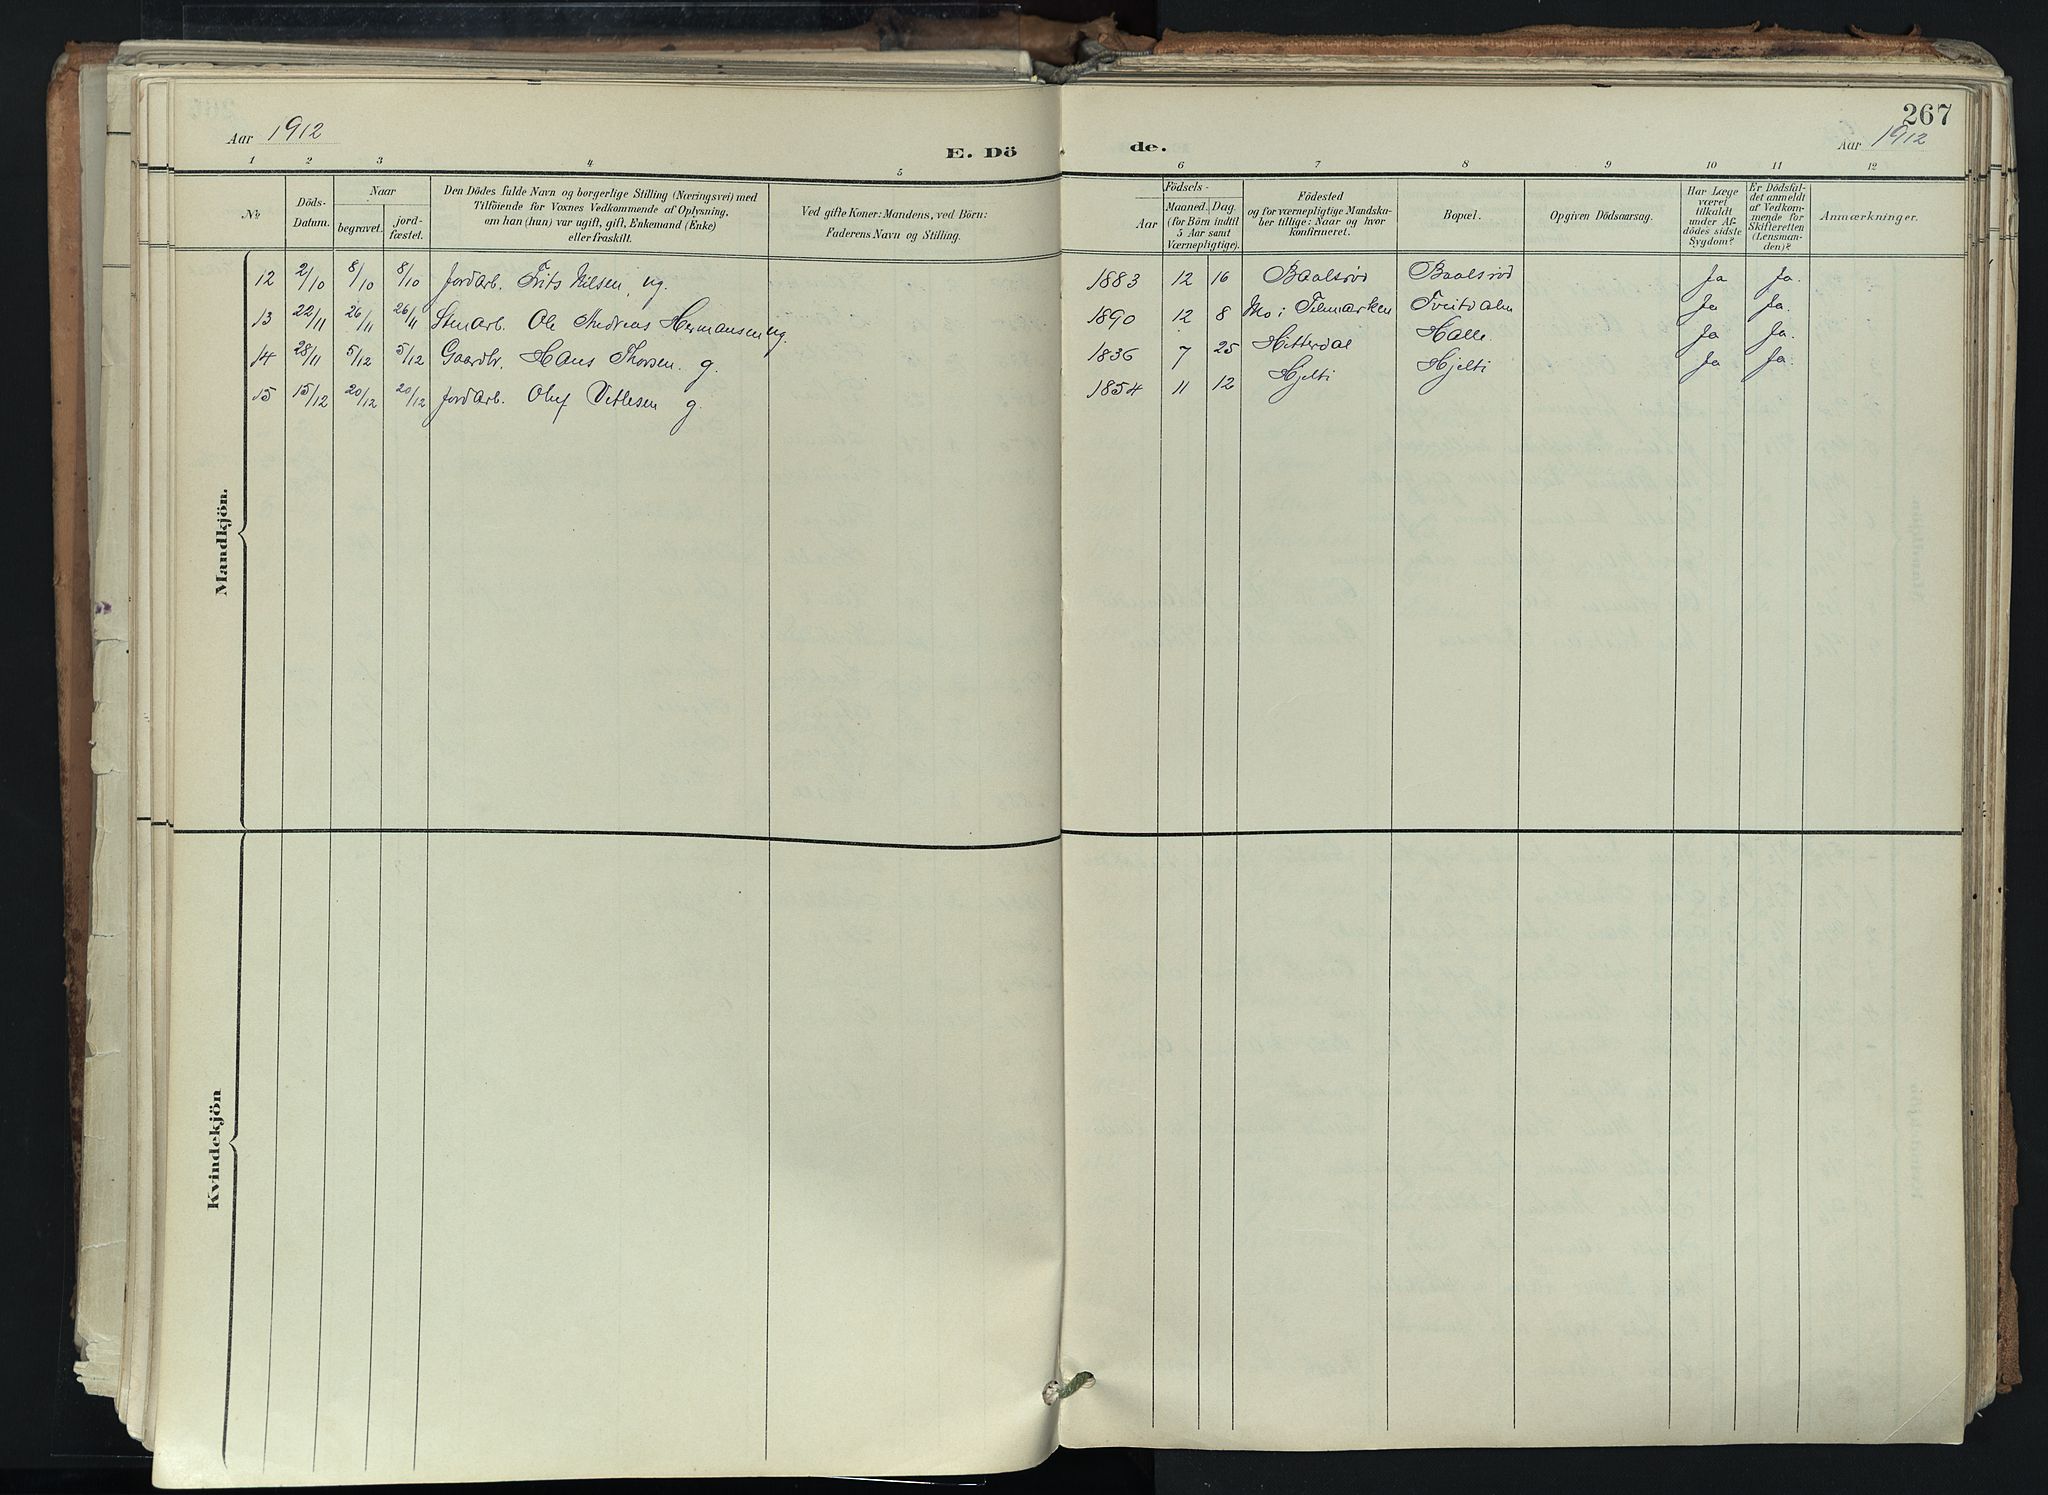 267
Aar 1912
E. Dö
de.
Aar 1912
1 2 3 4 5 6 7 8 9 10 11 12
№
Döds-Datum.
Naar
begravet.
jord-fæstet.
Den Dödes fulde Navn og borgerlige Stilling (Næringsvei) med
Tilföiende for Voxnes Vedkommende af Oplysning,
om han (hun) var ugift, gift, Enkemand (Enke)
eller fraskilt.
Ved gifte Koner: Mandens, ved Börn:
Faderens Navn og Stilling.
Födsels-
Aar
Maaned. Dag.
(for Börn indtil
5 Aar samt
Værnepligtige).
Födested
og for værnepligtige Mandska-
ber tillige: Naar og hvor
konfirmeret.
Bopæl.
Opgiven Dödsaarsag.
Har Læge
været
tilkaldt
under Af-
dödes sidste
Sygdom?
Er Dödsfal-
det anmeldt
af Vedkom-
mende for
Skifteretten
(Lensman-
den)?
Anmærkninger.
12 2/10 8/10 8/10 Jordarb. Frits Nilsen, ug. 1883 12 16 Baalsrød Baalsrød Ja Ja.
13 22/11 26/11 26/11 Stenarb. Ole Andreas Hermansen ug. 1890 12 8 Mo i Telemarken Tveitdalen Ja Ja.
14 28/11 5/12 5/12 Gaardbr. Hans Thorsen. g. 1836 7 25 Hitterdal Halle. Ja Ja.
15 15/12 20/12 20/12 Jordarb. Oluf Vetlesen g. 1854 11 12 Hjelti Hjelti Ja Ja.
Mandkjön.
Kvindekjön